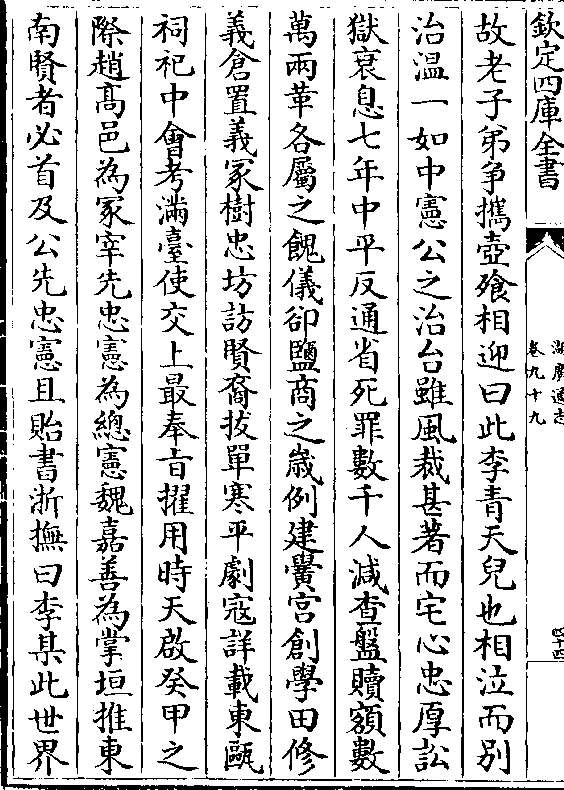 欽定四庫全書
湖廣通志
卷九十九
四十四
故老子弟争攜壺飱相迎曰此李青天兒也相泣而别
治温一如中憲公之治台雖風裁甚著而宅心忠厚訟
獄衰息七年中平反通省死罪數千人減查盤贖額數
萬兩革各屬之餽儀卻鹽商之歲例建黌宫創學田修
義倉置義冢樹忠坊訪賢裔拔單寒平劇寇詳載東甌
祠祀中會考滿臺使交上最奉㫖擢用時天啟癸甲之
際趙髙邑為冢宰先忠憲為總憲魏嘉善為掌垣推東
南賢者必首及公先忠憲且貽書浙撫曰李某此世界